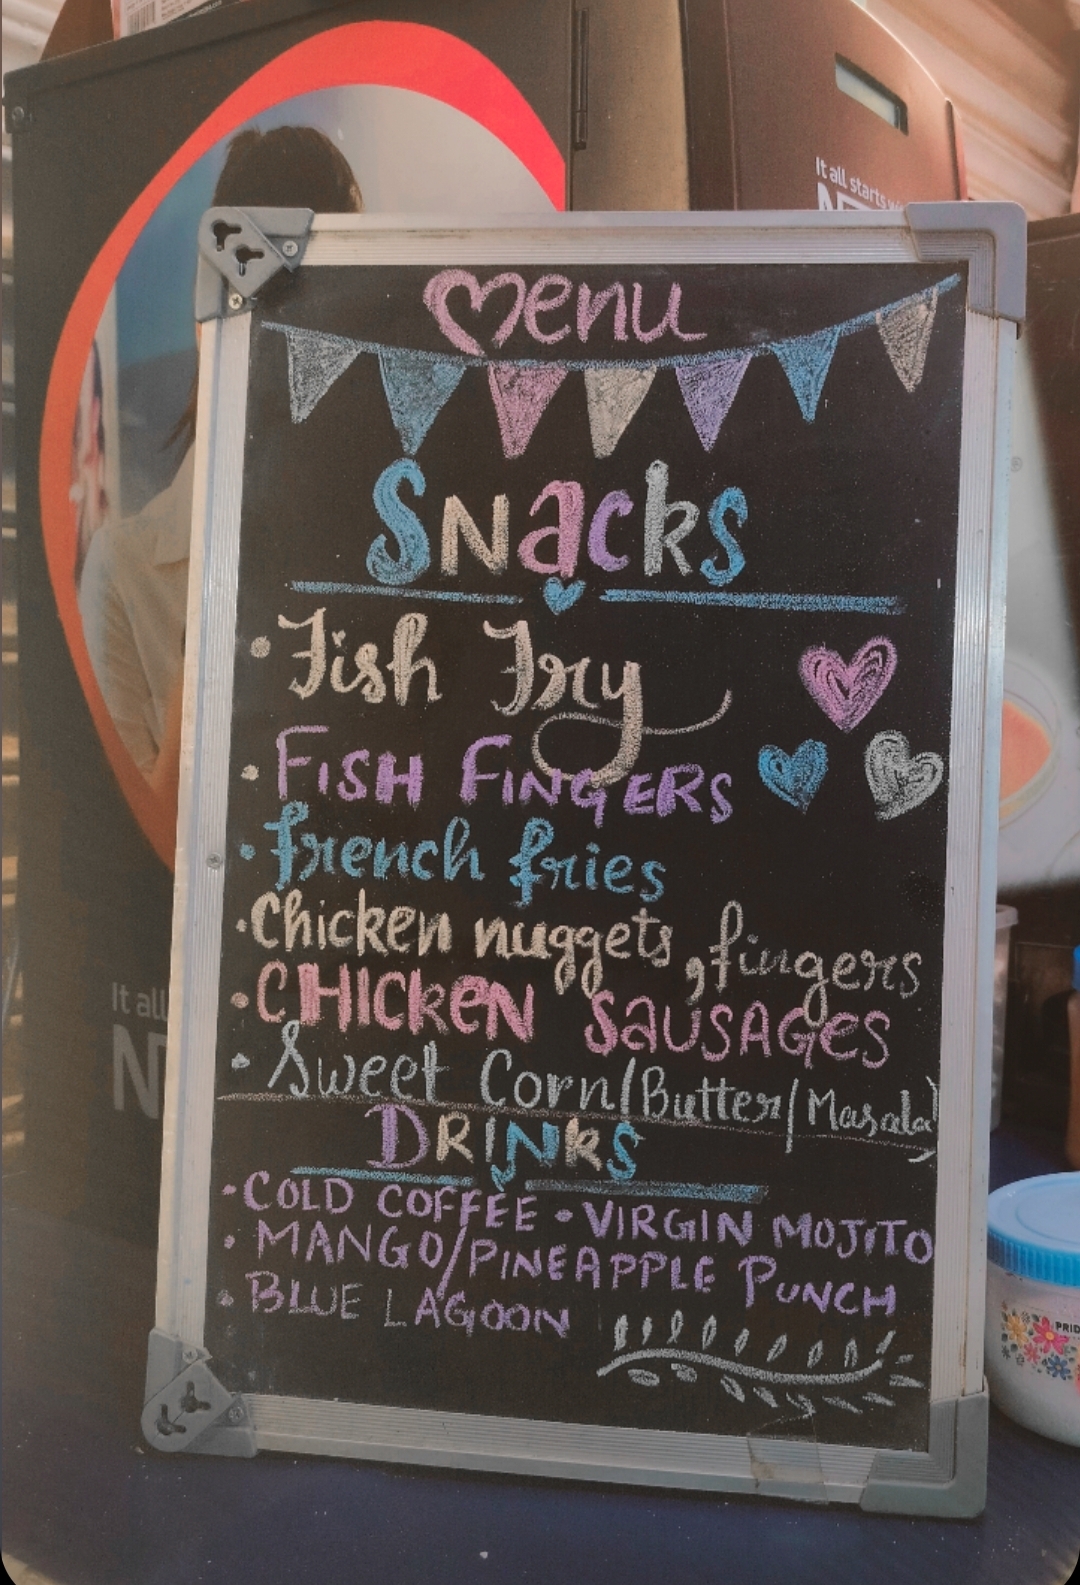 It all starts
Menu
Snacks
• Fish Fry
• FISH FINGERS
• french fries
• Chicken nuggets, fingers
• CHICKEN SAUSAGES
• Sweet Corn (Butter/Masala)
DRINKS
• COLD COFFEE • VIRGIN MOJITO
• MANGO/PINEAPPLE PUNCH
• BLUE LAGOON
It all